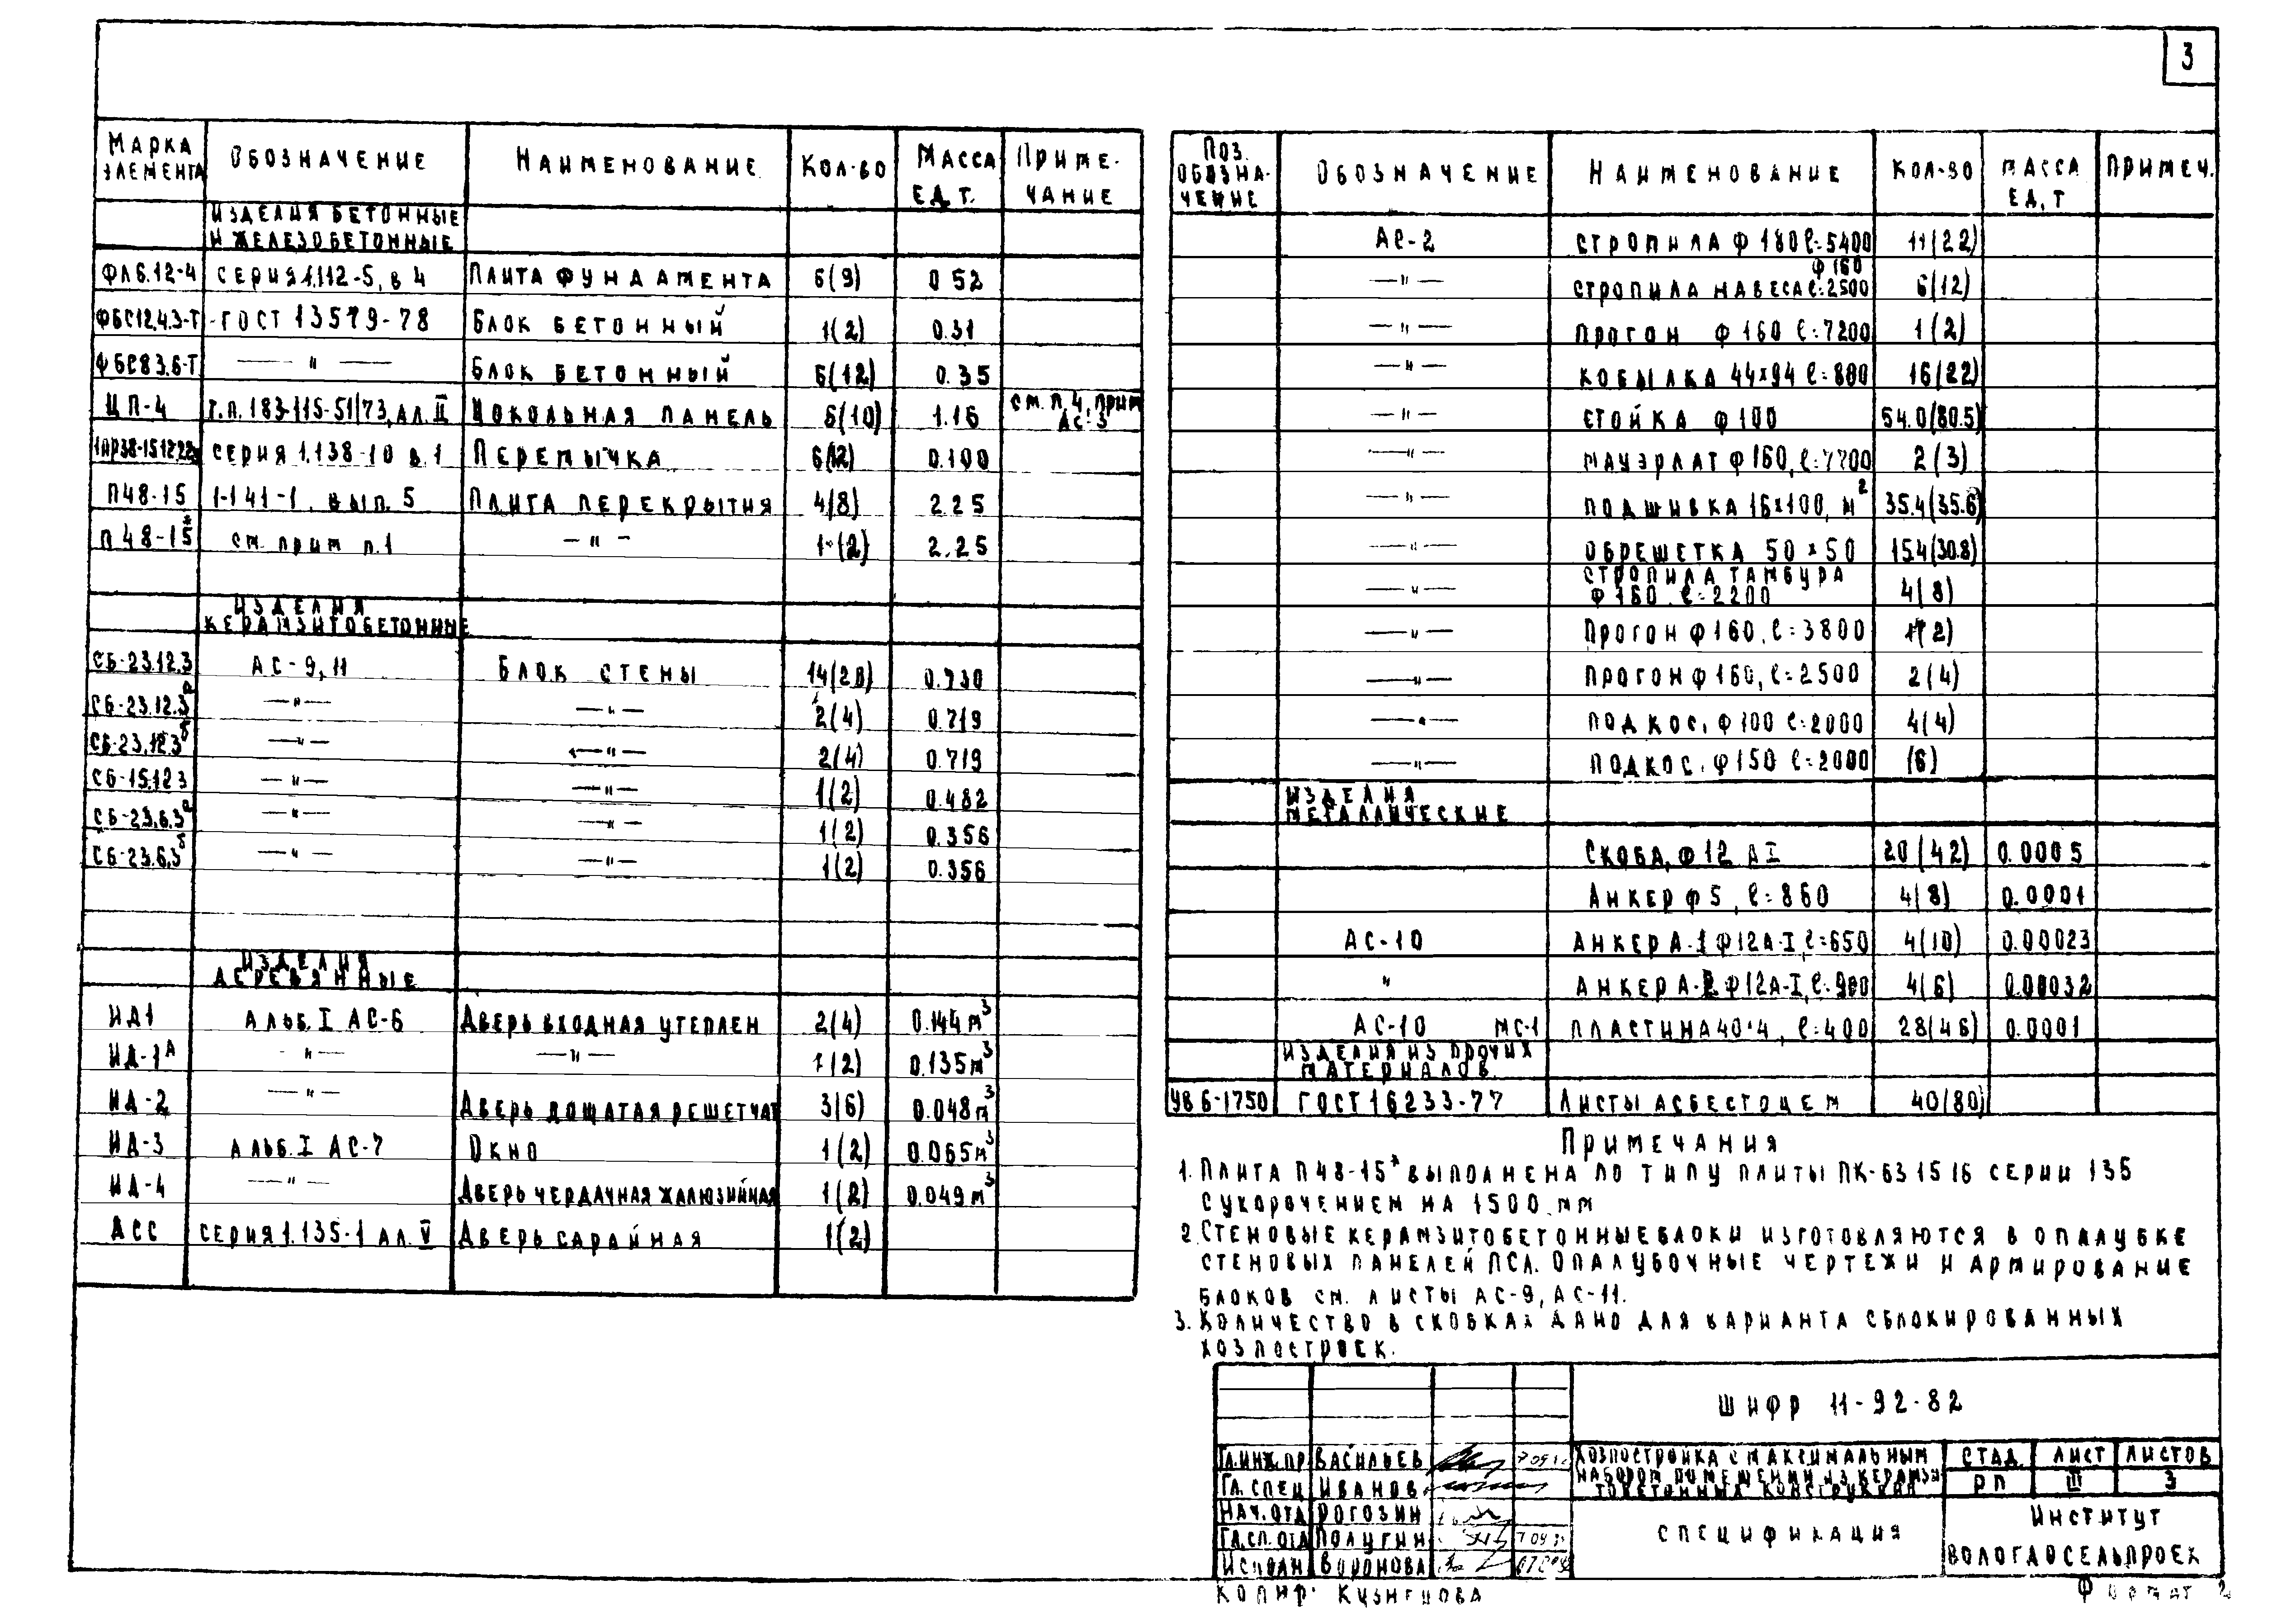 3
МАРКА ЭЛЕМЕНТА ОБОЗНАЧЕНИЕ НАИМЕНОВАНИЕ КОЛ-ВО МАССА ЕД. Т. ПРИМЕ-ЧАНИЕ
ИЗДЕЛИЯ БЕТОННЫЕ
И ЖЕЛЕЗОБЕТОННЫЕ
ФЛ6.12-4 СЕРИЯ 1.112-5, в 4 ПЛИТА ФУНДАМЕНТА 6(9) 0 52
ФБС12.4.3-Т ГОСТ 13579-78 БЛОК БЕТОННЫЙ 1(2) 0.31
ФБС8.3.6-Т — " — БЛОК БЕТОННЫЙ 6(12) 0.35
ЦП-4 Т.П. 183-115-51/73, АЛ. II ЦОКОЛЬНАЯ ПАНЕЛЬ 6(10) 1.16 СМ. П. 4, ПРИМ АС-3
1ПР38-15.12.22 СЕРИЯ 1.138-10 в.1 ПЕРЕМЫЧКА 6(12) 0.100
П48-15 1-141-1, ВЫП. 5 ПЛИТА ПЕРЕКРЫТИЯ 4(8) 2.25
П48-15* СМ. ПРИМ П.1 — " — 1(2) 2.25
ИЗДЕЛИЯ
КЕРАМЗИТОБЕТОННЫЕ
СБ-23.12.3 АС-9, 11 БЛОК СТЕНЫ 14(28) 0.730
СБ-23.12.3а — " — — " — 2(4) 0.719
СБ-23.12.3б — " — — " — 2(4) 0.719
СБ-15.12 3 — " — — " — 1(2) 0.482
СБ-23.6.3а — " — — " — 1(2) 0.356
СБ-23.6.3б — " — — " — 1(2) 0.356
ИЗДЕЛИЯ
ДЕРЕВЯННЫЕ
ИД1 АЛЬБ. I АС-6 ДВЕРЬ ВХОДНАЯ УТЕПЛЕН 2(4) 0.144 м³
ИД-1А — " — — " — 1(2) 0.135 м³
ИД-2 — " — ДВЕРЬ ДОЩАТАЯ РЕШЕТЧАТ 3(6) 0.048 м³
ИД-3 АЛЬБ. I АС-7 ОКНО 1(2) 0.065 м³
ИД-4 — " — ДВЕРЬ ЧЕРДАЧНАЯ ЖАЛЮЗИЙНАЯ 1(2) 0.049 м³
АСС СЕРИЯ 1.135-1 АЛ. V ДВЕРЬ САРАЙНАЯ 1(2)
ПОЗ. ОБОЗНА-ЧЕНИЕ ОБОЗНАЧЕНИЕ НАИМЕНОВАНИЕ КОЛ-ВО МАССА ЕД, Т ПРИМЕЧ.
АС-2 СТРОПИЛА Ф 180 ℓ=5400 11(22)
— " — СТРОПИЛА НАВЕСА Ф160 ℓ=2500 6(12)
— " — ПРОГОН Ф 160 ℓ=7200 1(2)
— " — КОБЫЛКА 44×94 ℓ=800 16(22)
— " — СТОЙКА Ф 100 54.0(80.5)
— " — МАУЭРЛАТ Ф160, ℓ=7200 2(3)
— " — ПОДШИВКА 16×100, м² 35.4(35.6)
— " — ОБРЕШЕТКА 50×50 154(30.8)
— " — СТРОПИЛА ТАМБУРА Ф 160. ℓ=2200 4(8)
— " — ПРОГОН Ф 160, ℓ=3800 1(2)
— " — ПРОГОН Ф 160, ℓ=2500 2(4)
— " — ПОДКОС, Ф 100 ℓ=2000 4(4)
— " — ПОДКОС, Ф150 ℓ=2000 (6)
ИЗДЕЛИЯ
МЕТАЛЛИЧЕСКИЕ
СКОБА, Ф 12 АI 20(42) 0.0005
АНКЕР Ф 5, ℓ=860 4(8) 0.0001
АС-10 АНКЕР А-1 Ф12А-I, ℓ=650 4(10) 0.00023
" АНКЕР А-2 Ф12А-I, ℓ=900 4(6) 0.00032
АС-10 МС-1 ПЛАСТИНА 40×4, ℓ=400 28(46) 0.0001
ИЗДЕЛИЯ ИЗ ПРОЧИХ
МАТЕРИАЛОВ.
УВ 6-1750 ГОСТ 16233-77 ЛИСТЫ АСБЕСТОЦЕМ 40(80)
ПРИМЕЧАНИЯ
1. ПЛИТА П48-15* ВЫПОЛНЕНА ПО ТИПУ ПЛИТЫ ПК-63 15 16 СЕРИИ 135
С УКОРОЧЕНИЕМ НА 1500 ММ
2. СТЕНОВЫЕ КЕРАМЗИТОБЕТОННЫЕ БЛОКИ ИЗГОТОВЛЯЮТСЯ В ОПАЛУБКЕ
СТЕНОВЫХ ПАНЕЛЕЙ ПСЛ. ОПАЛУБОЧНЫЕ ЧЕРТЕЖИ И АРМИРОВАНИЕ
БЛОКОВ СМ. ЛИСТЫ АС-9, АС-11.
3. КОЛИЧЕСТВО В СКОБКАХ ДАНО ДЛЯ ВАРИАНТА СБЛОКИРОВАННЫХ
ХОЗПОСТРОЕК.
ШИФР 11-92-82
ГЛ. ИНЖ. ПР ВАСИЛЬЕВ
ГЛ. СПЕЦ ИВАНОВ
НАЧ. ОТД РОГОЗИН
ГЛ. СП. ОТД ПОЛУГИН
ИСПОЛН ВОРОНОВА
ХОЗПОСТРОЙКА С МАКСИМАЛЬНЫМ
НАБОРОМ ПОМЕЩЕНИЙ ИЗ КЕРАМЗИ
ТОБЕТОННЫХ КОНСТРУКЦИЙ
СТАД. ЛИСТ ЛИСТОВ
РП III 3
СПЕЦИФИКАЦИЯ
ИНСТИТУТ
ВОЛОГДОСЕЛЬПРОЕК
КОПИР: КУЗНЕЦОВА
ФОРМАТ 2